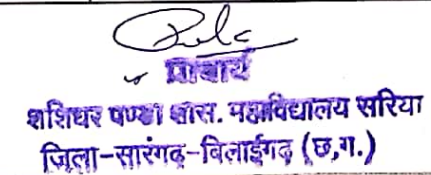 प्राचार्य
शशिधर पण्डा शास. महाविद्यालय सरिया
जिला-सारंगढ़-बिलाईगढ़ (छ.ग.)